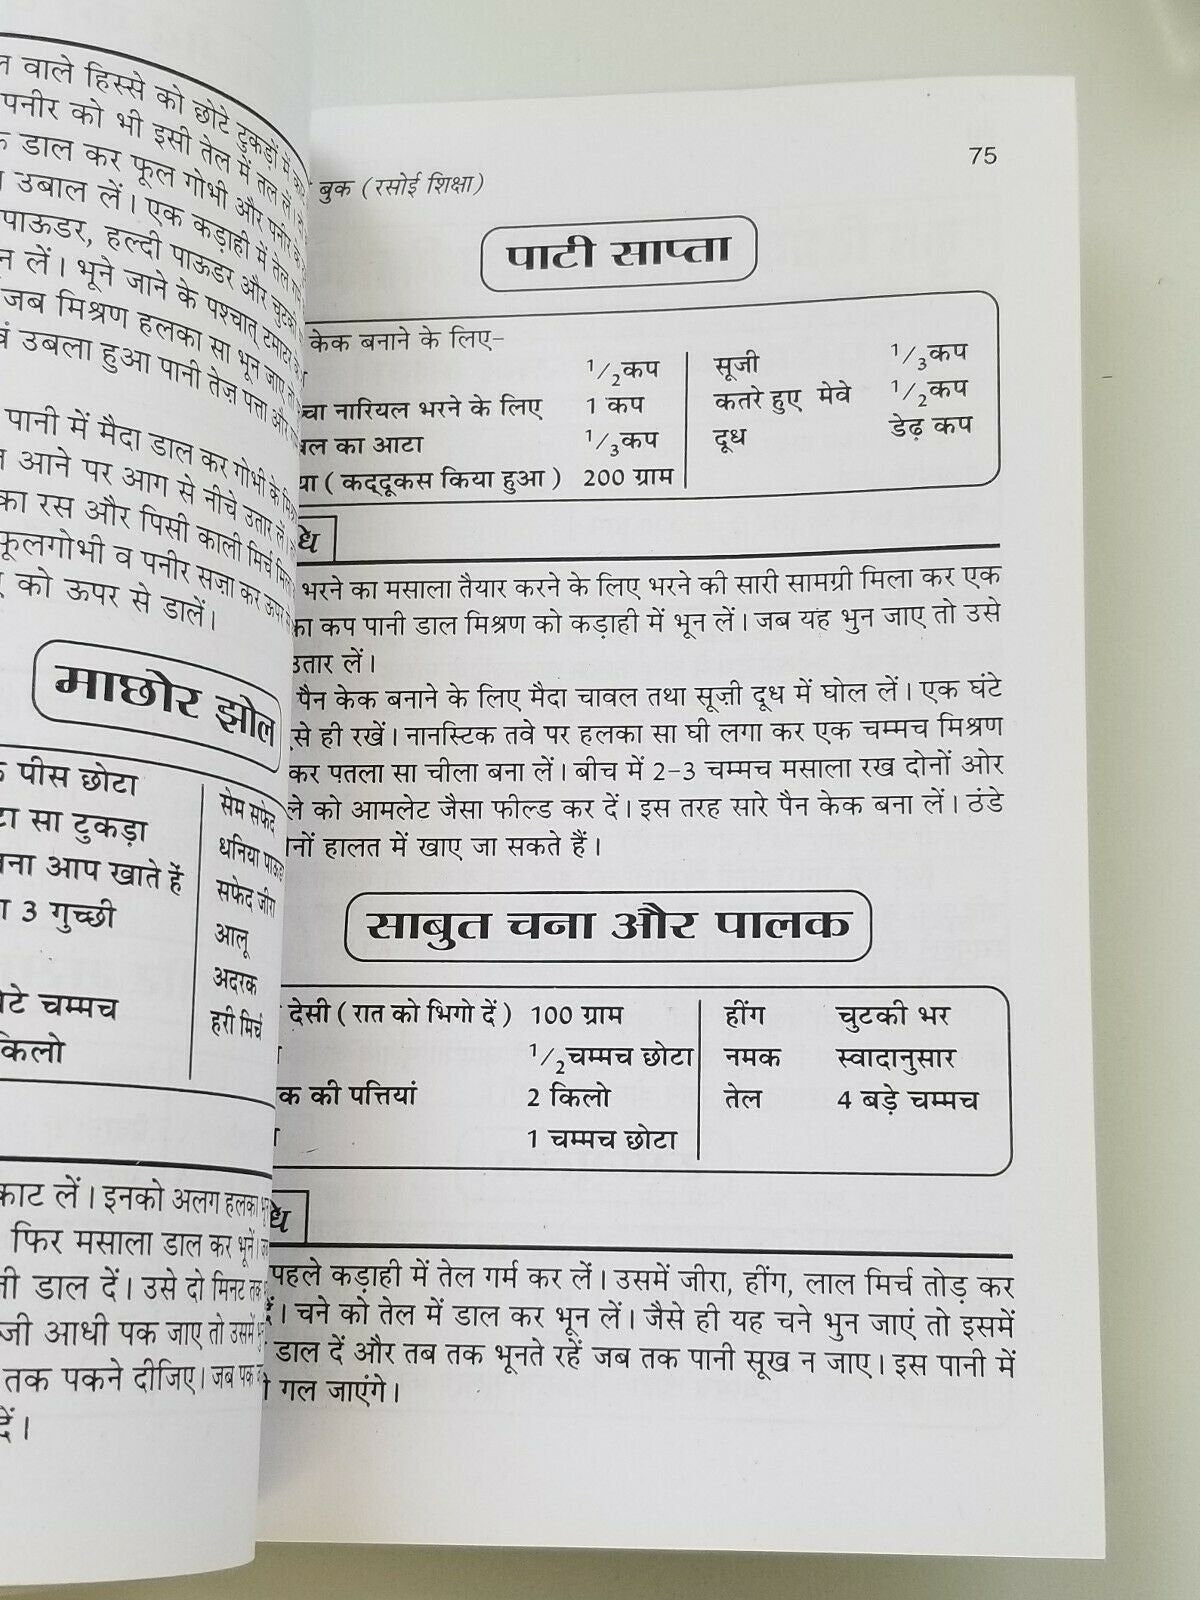 वाले हिस्से को छोटे टुकड़ों में
पनीर को भी इसी तेल में तल लें।
डाल कर फूल गोभी और पनीर के
उबाल लें। एक कड़ाही में तेल
पाऊडर, हल्दी पाऊडर और चुटकी
लें। भूने जाने के पश्चात् टमाटर
जब मिश्रण हलका सा भून जाए तो
उबला हुआ पानी तेज़ पत्ता और
पानी में मैदा डाल कर गोभी के मिश्रण
आने पर आग से नीचे उतार लें।
का रस और पिसी काली मिर्च मिला
फूलगोभी व पनीर सज़ा कर ऊपर
को ऊपर से डालें।
माछोर झोल
पीस छोटा
सा टुकड़ा
आप खाते हैं
3 गुच्छी
चम्मच
किलो
सेम सफेद
धनिया पाऊडर
सफेद जीरा
आलू
अदरक
हरी मिर्च
काट लें। इनको अलग हलका
फिर मसाला डाल कर भूनें।
डाल दें। उसे दो मिनट तक
आधी पक जाए तो उसमें
तक पकने दीजिए। जब पक
दें।
75
बुक (रसोई शिक्षा)
पाटी साप्ता
केक बनाने के लिए-
1/2 कप सूजी 1/3 कप
नारियल भरने के लिए 1 कप कतरे हुए मेवे 1/2 कप
का आटा 1/3 कप दूध डेढ़ कप
(कद्दूकस किया हुआ) 200 ग्राम
भरने का मसाला तैयार करने के लिए भरने की सारी सामग्री मिला कर एक
कप पानी डाल मिश्रण को कड़ाही में भून लें। जब यह भुन जाए तो उसे
उतार लें।
पैन केक बनाने के लिए मैदा चावल तथा सूज़ी दूध में घोल लें। एक घंटे
से ही रखें। नानस्टिक तवे पर हलका सा घी लगा कर एक चम्मच मिश्रण
कर पतला सा चीला बना लें। बीच में 2-3 चम्मच मसाला रख दोनों ओर
को आमलेट जैसा फील्ड कर दें। इस तरह सारे पैन केक बना लें। ठंडे
हालत में खाए जा सकते हैं।
साबुत चना और पालक
देसी (रात को भिगो दें) 100 ग्राम हींग चुटकी भर
1/2 चम्मच छोटा नमक स्वादानुसार
की पत्तियां 2 किलो तेल 4 बड़े चम्मच
1 चम्मच छोटा
पहले कड़ाही में तेल गर्म कर लें। उसमें जीरा, हींग, लाल मिर्च तोड़ कर
चने को तेल में डाल कर भून लें। जैसे ही यह चने भुन जाएं तो इसमें
डाल दें और तब तक भूनते रहें जब तक पानी सूख न जाए। इस पानी में
गल जाएंगे।